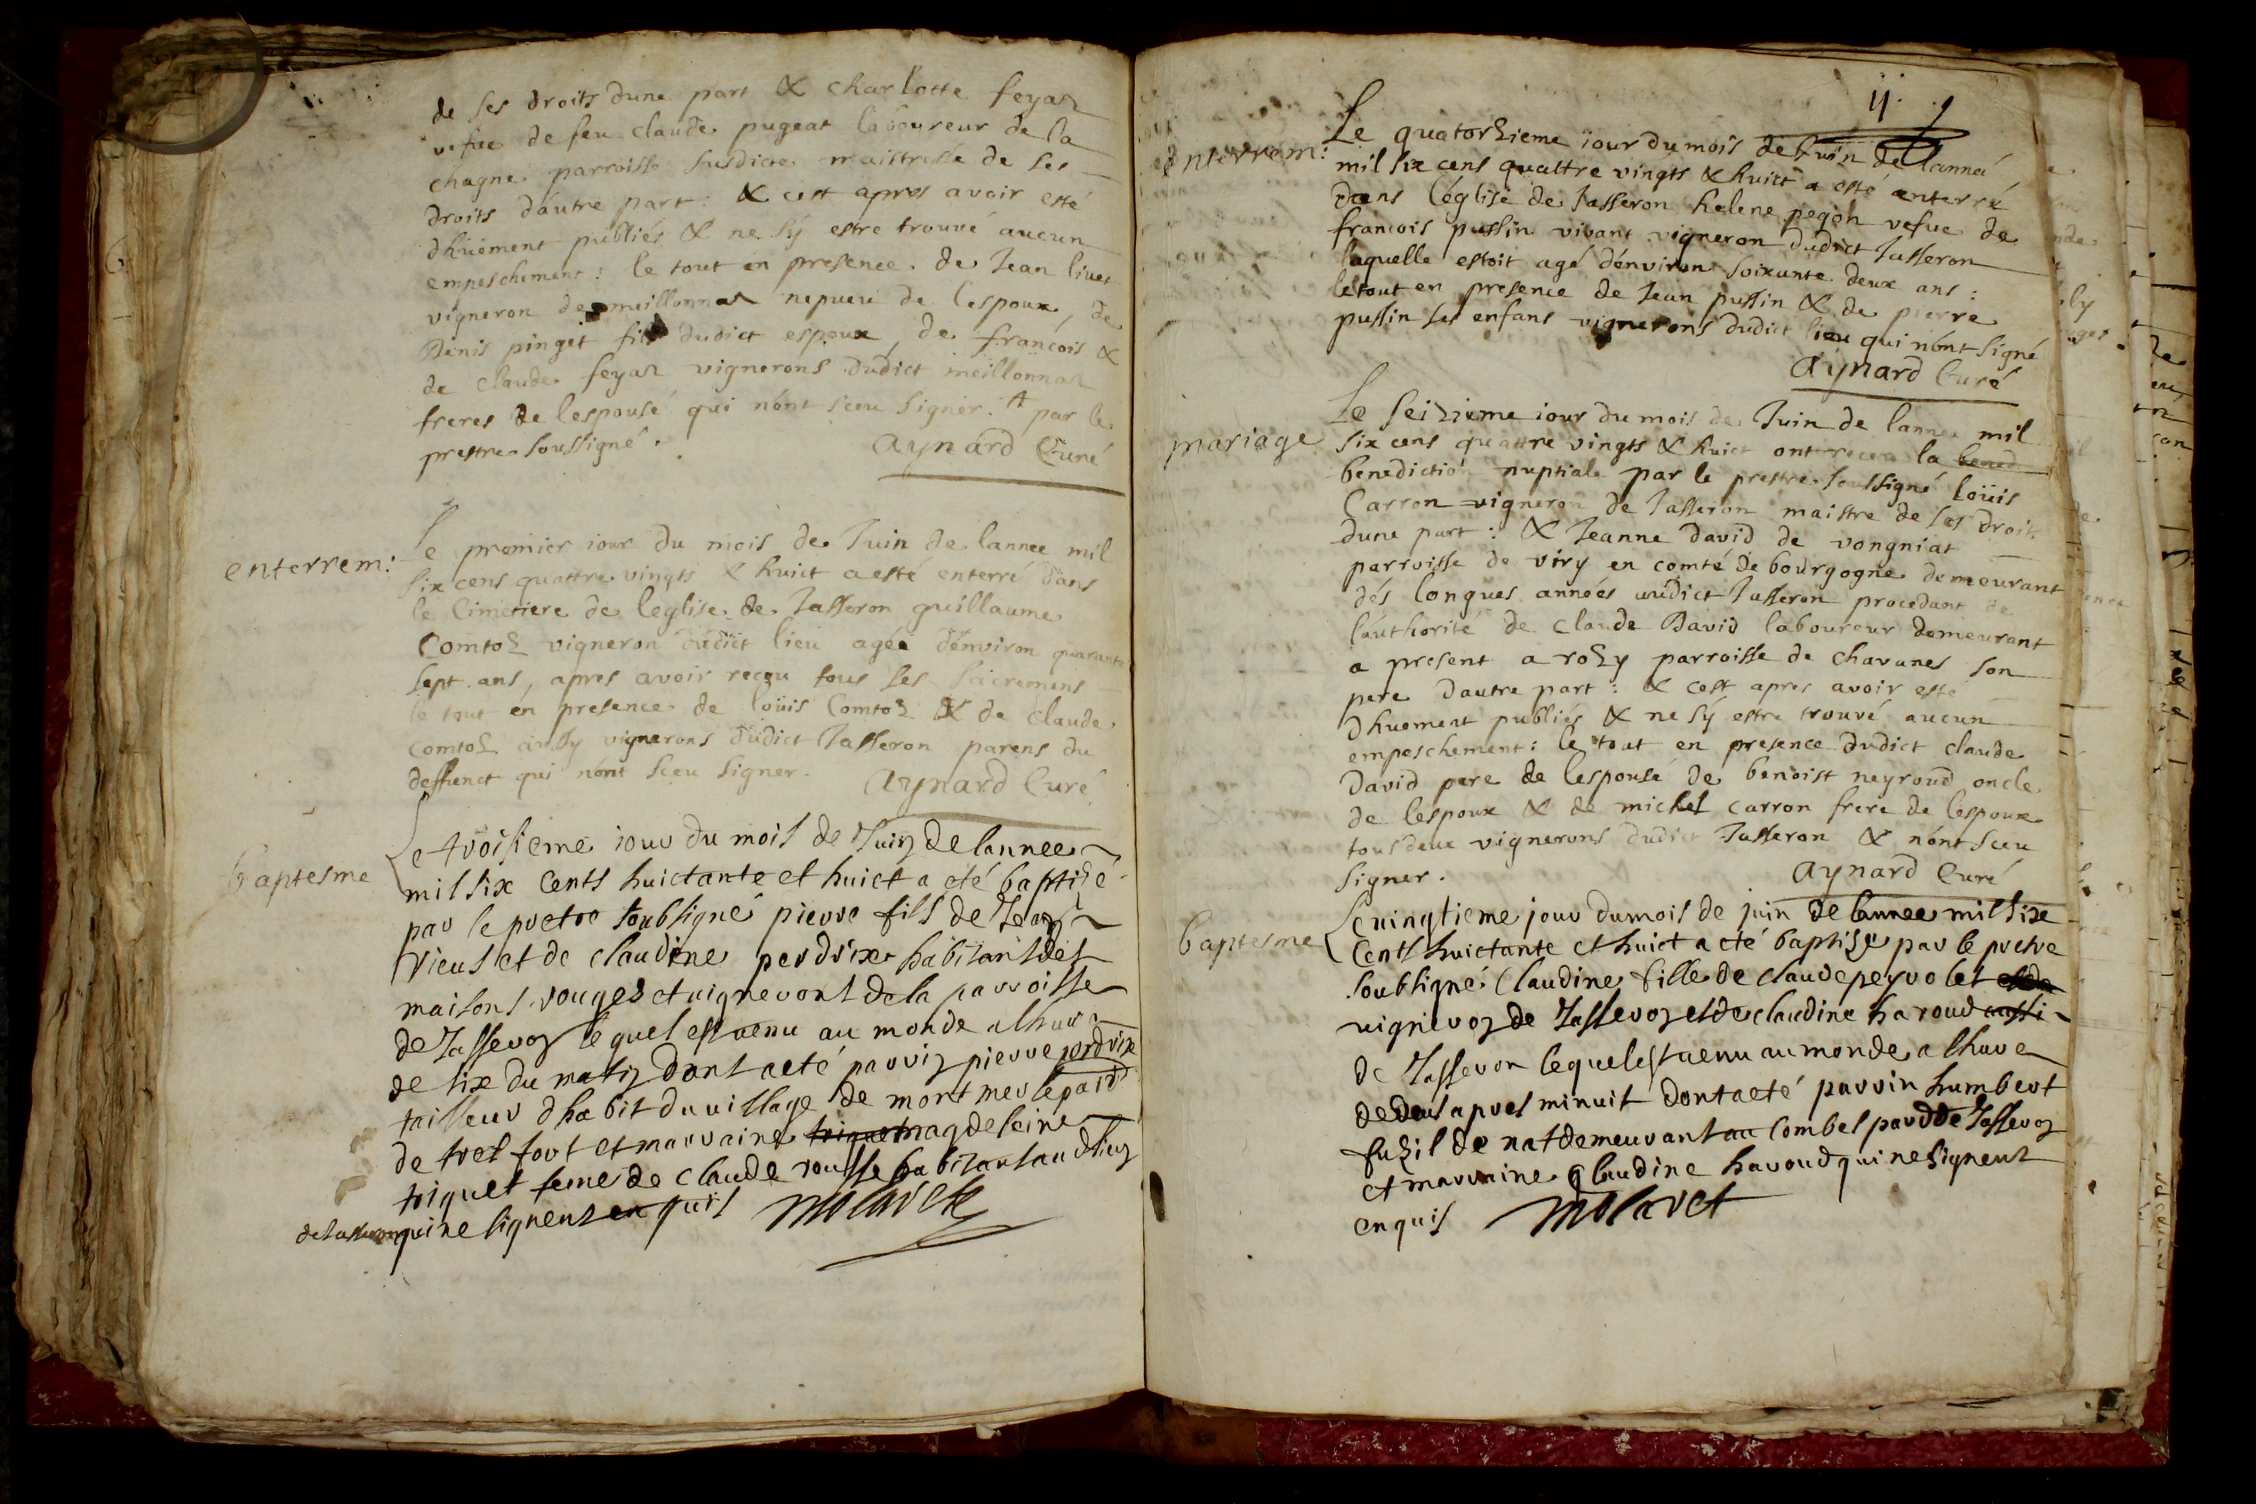 de ses droits dune part & charlotte feyaz
vefue de feu claude pugeat laboureur de la
chagne parroisse susdicte maistresse de ses
droits dáutre part : & cest apres avoir esté
dhuëment publiés & ne sÿ estre trouvé aucun
empeschement : le tout en presence de Jean livet
vigneron de meillonnaz nepueu de lespoux, de
Denis pinget fils dudict espoux, de francois &
de claude feyaz vignerons dudict meillonnaz
freres de lespousé qui nónt sceu signer. par le
prestre soussigné.
aynard Curé
enterrem:
Le premier iour du mois de Juin de lannee mil
six cens quattre vingts & huict a esté enterré dans
le Cimetiere de leglise de Jasseron guillaume
Comtoz vigneron dudict lieu agée dénviron quarante
sept ans, apres avoir reçeu tous ses sacremens
le tout en presence de loüis Comtoz & de claude
comtoz aussy vignerons dudict Jasseron parens du
deffunct qui nónt sceu signer.
aynard Curé
baptesme
Le troisieme iour du mois de Juin de lannee
mil six cents huictante et huict a eté baptizé
par le pretre soubsigné pierre fils de Jean
vieus et de claudine perdrix habitants des
maisons rouges et uignerons de la parroisse
de Jasseron le quel est uenu au monde a lhure
de six du matin dont a eté parrin pierre perdrix
tailleur dhabit du village de mont merle pais
de tref fort et marraine triquet magdeleine
triquet feme de claude rousse habitant au dt lieu
de Jasseron qui ne signent en quis
molaret
11.
enterrem:
Le quatorzieme iour du mois de Juin de lanneé
mil six cens quattre vingts & huict a esté enterré
dans léglise de Jasseron helene pegon vefue de
francois pussin vivant vigneron dudict Jasseron
laquelle estoit agé dénviron soixante deux ans :
le tout en presence de Jean pussin & de pierre
pussin ses enfans vignerons dudict lieu qui nónt signé
aynard Curé
mariage
Le seizieme iour du mois de Juin de lannee mil
six cens quattre vingts & huict ont reçeu la bened
benediction nuptiale par le prestre soussigné loüis
Carron vigneron de Jasseron maistre de ses droits
dune part : & Jeanne david de vongniat
parroisse de viry en comté de bourgogne demeurant
dés longues années audict Jasseron procedant de
láuthorité de claude David laboureur demeurant
a present a rozy parroisse de chavanes son
pere dautre part : & cest apres avoir esté
dhuement publiés & ne sÿ estre trouvé aucun
empeschement : le tout en presence dudict claude
David pere de lespousé de benoist neyroud oncle
de lespoux & de michel carron frere de lespoux
tous deux vignerons dudict Jasseron & nónt sceu
signer.
aynard Curé
baptesme
Le uingtieme jour du mois de juin de lannee mil six
cents huictante et huict a eté baptizé par le pretre
soubsigné Claudine fille de claude peyrolet
uigneron de Jasseron et de claudine haroud aussi
de Jasseron lequel est uenu au monde a lhure
de deus apres minuit dont a eté parrin humbert
fuzil de nat demeurant au Combet par dde Jasseron
et marraine claudine haroud qui ne signent
enquis
molaret